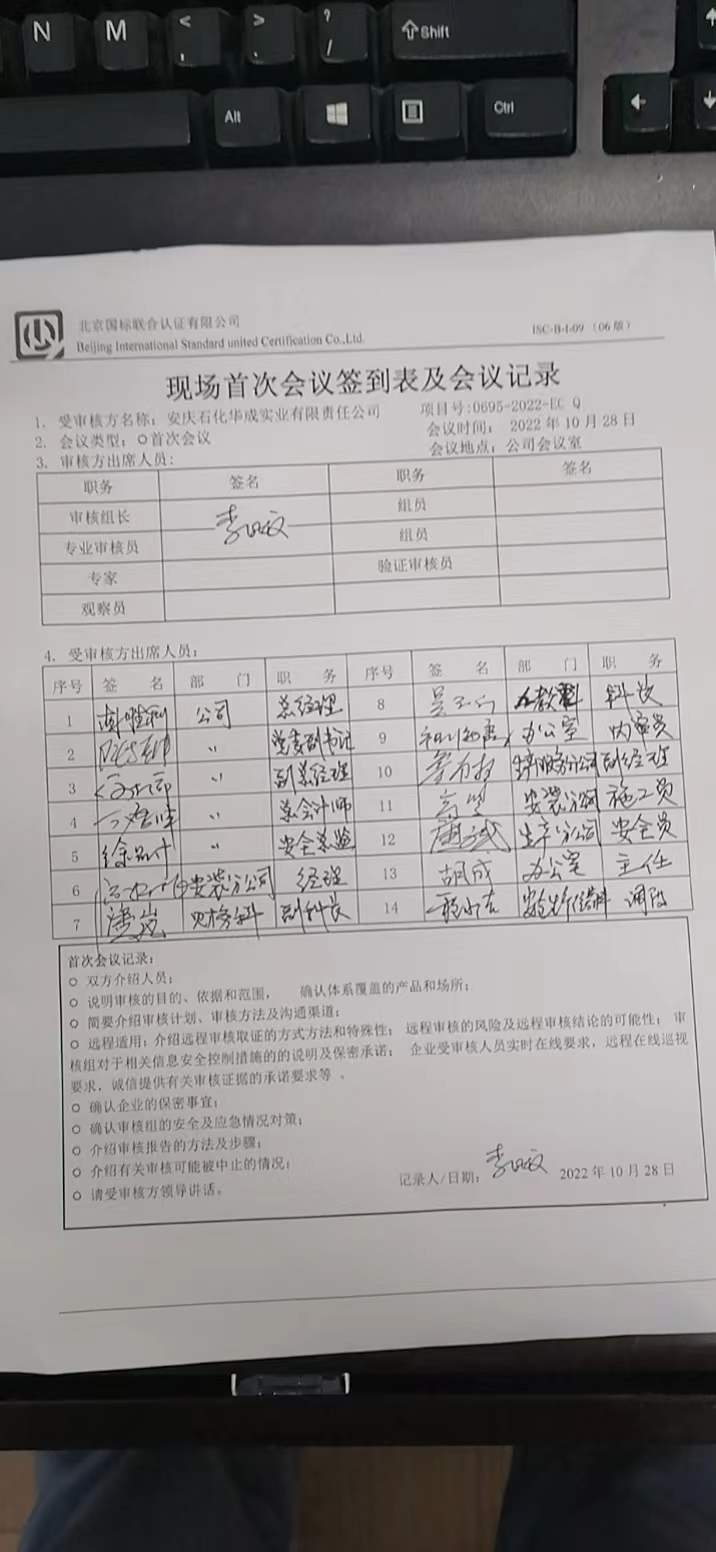 N M < , > . ? / Shift
Alt Ctrl
北京国标联合认证有限公司
Beijing International Standard united Certification Co.,Ltd.
ISC-B-I-09（06版）
现场首次会议签到表及会议记录
1. 受审核方名称：安庆石化华成实业有限责任公司 项目号:0695-2022-EC Q
2. 会议类型：○首次会议 会议时间： 2022 年 10 月 28 日
会议地点：公司会议室
3. 审核方出席人员：
职务 签名 职务 签名
审核组长 组员
专业审核员 组员
专家 验证审核员
观察员
4. 受审核方出席人员：
序号 签 名 部 门 职 务 序号 签 名 部 门 职 务
1 公司 总经理 8
2 〃 党委副书记 9 办公室 内审员
3 〃 副总经理 10 副经理
4 〃 总会计师 11 高坚 安装分公司 施工员
5 〃 安全总监 12 生产分公司 安全员
6 安装分公司 经理 13 胡成 办公室 主任
7 潘岚 财务科 副科长 14
首次会议记录：
○ 双方介绍人员；
○ 说明审核的目的、依据和范围， 确认体系覆盖的产品和场所；
○ 简要介绍审核计划、审核方法及沟通渠道；
○ 远程适用：介绍远程审核取证的方式方法和特殊性； 远程审核的风险及远程审核结论的可能性； 审
核组对于相关信息安全控制措施的的说明及保密承诺； 企业受审核人员实时在线要求，远程在线巡视
要求，诚信提供有关审核证据的承诺要求等 。
○ 确认企业的保密事宜；
○ 确认审核组的安全及应急情况对策；
○ 介绍审核报告的方法及步骤；
○ 介绍有关审核可能被中止的情况；
○ 请受审核方领导讲话。
记录人/日期： 2022 年 10 月 28 日